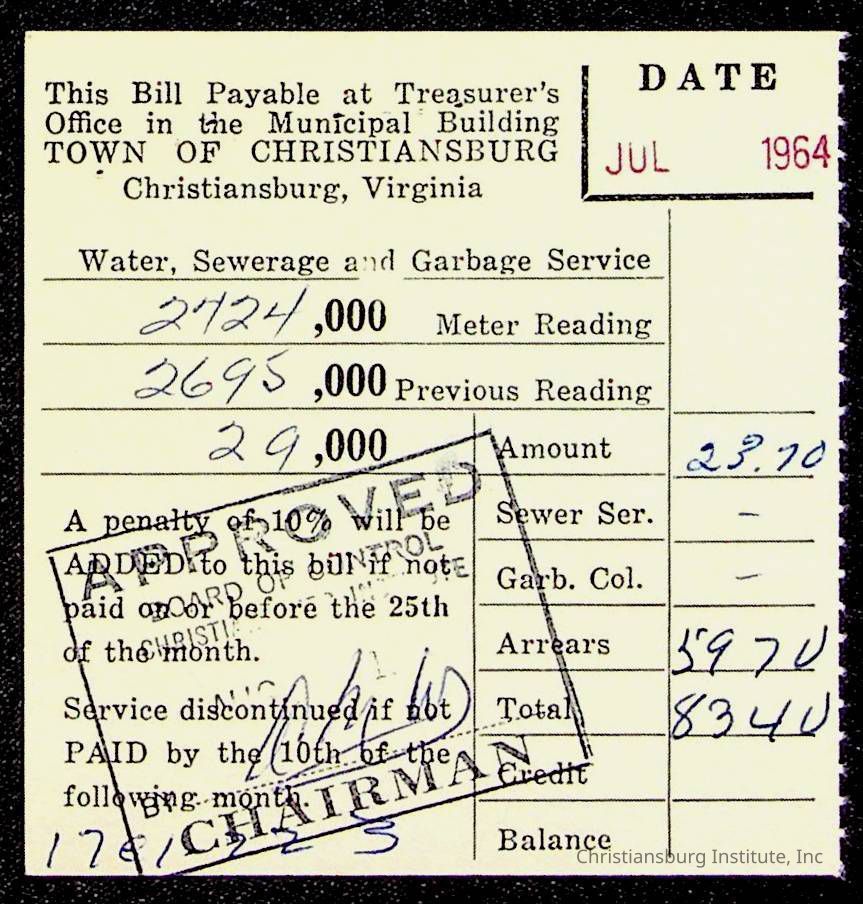 DATE
This Bill Payable at Treasurer's
Office in the Municipal Building
TOWN OF CHRISTIANSBURG
Christiansburg, Virginia
JUL 1964
Water, Sewerage and Garbage Service
2724,000 Meter Reading
2695,000 Previous Reading
29,000 Amount 23.70
Sewer Ser. –
Garb. Col. –
Arrears 5970
Total 8340
Credit
Balance
A penalty of 10% will be
ADDED to this bill if not
paid on or before the 25th
of the month.
Service discontinued if not
PAID by the 10th of the
following month.
APPROVED
BOARD OF CONTROL
BY
CHAIRMAN
Christiansburg Institute, Inc